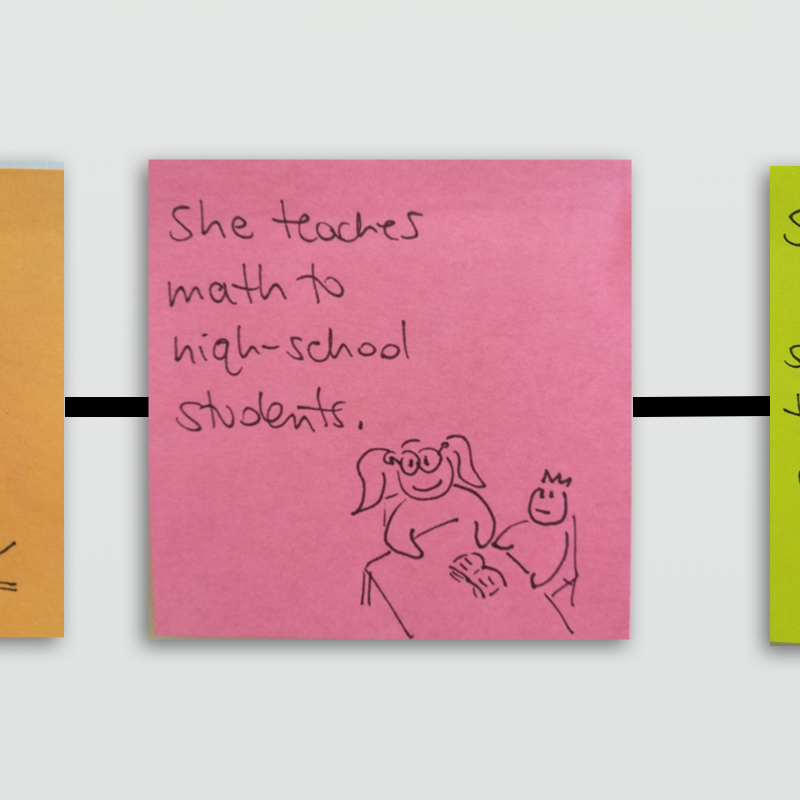 She teaches
math to
high-school
students.